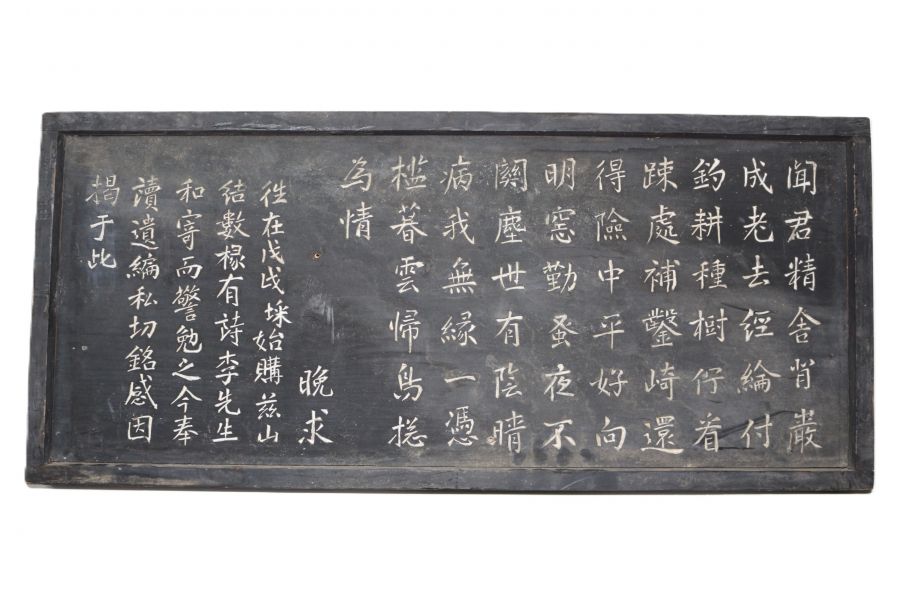 聞君精舍背巖
成老去經綸付
釣耕種樹佇看
踈處補鑿崎還
得險中平好向
明窓勤蚤夜不
關塵世有陰晴
病我無緣一憑
檻暮雲帰鳥揔
為情
晩求
徃在戊戌埰始購玆山
結數椽有詩李先生
和寄而警勉之今奉
讀遺編私切銘感因
揭于此